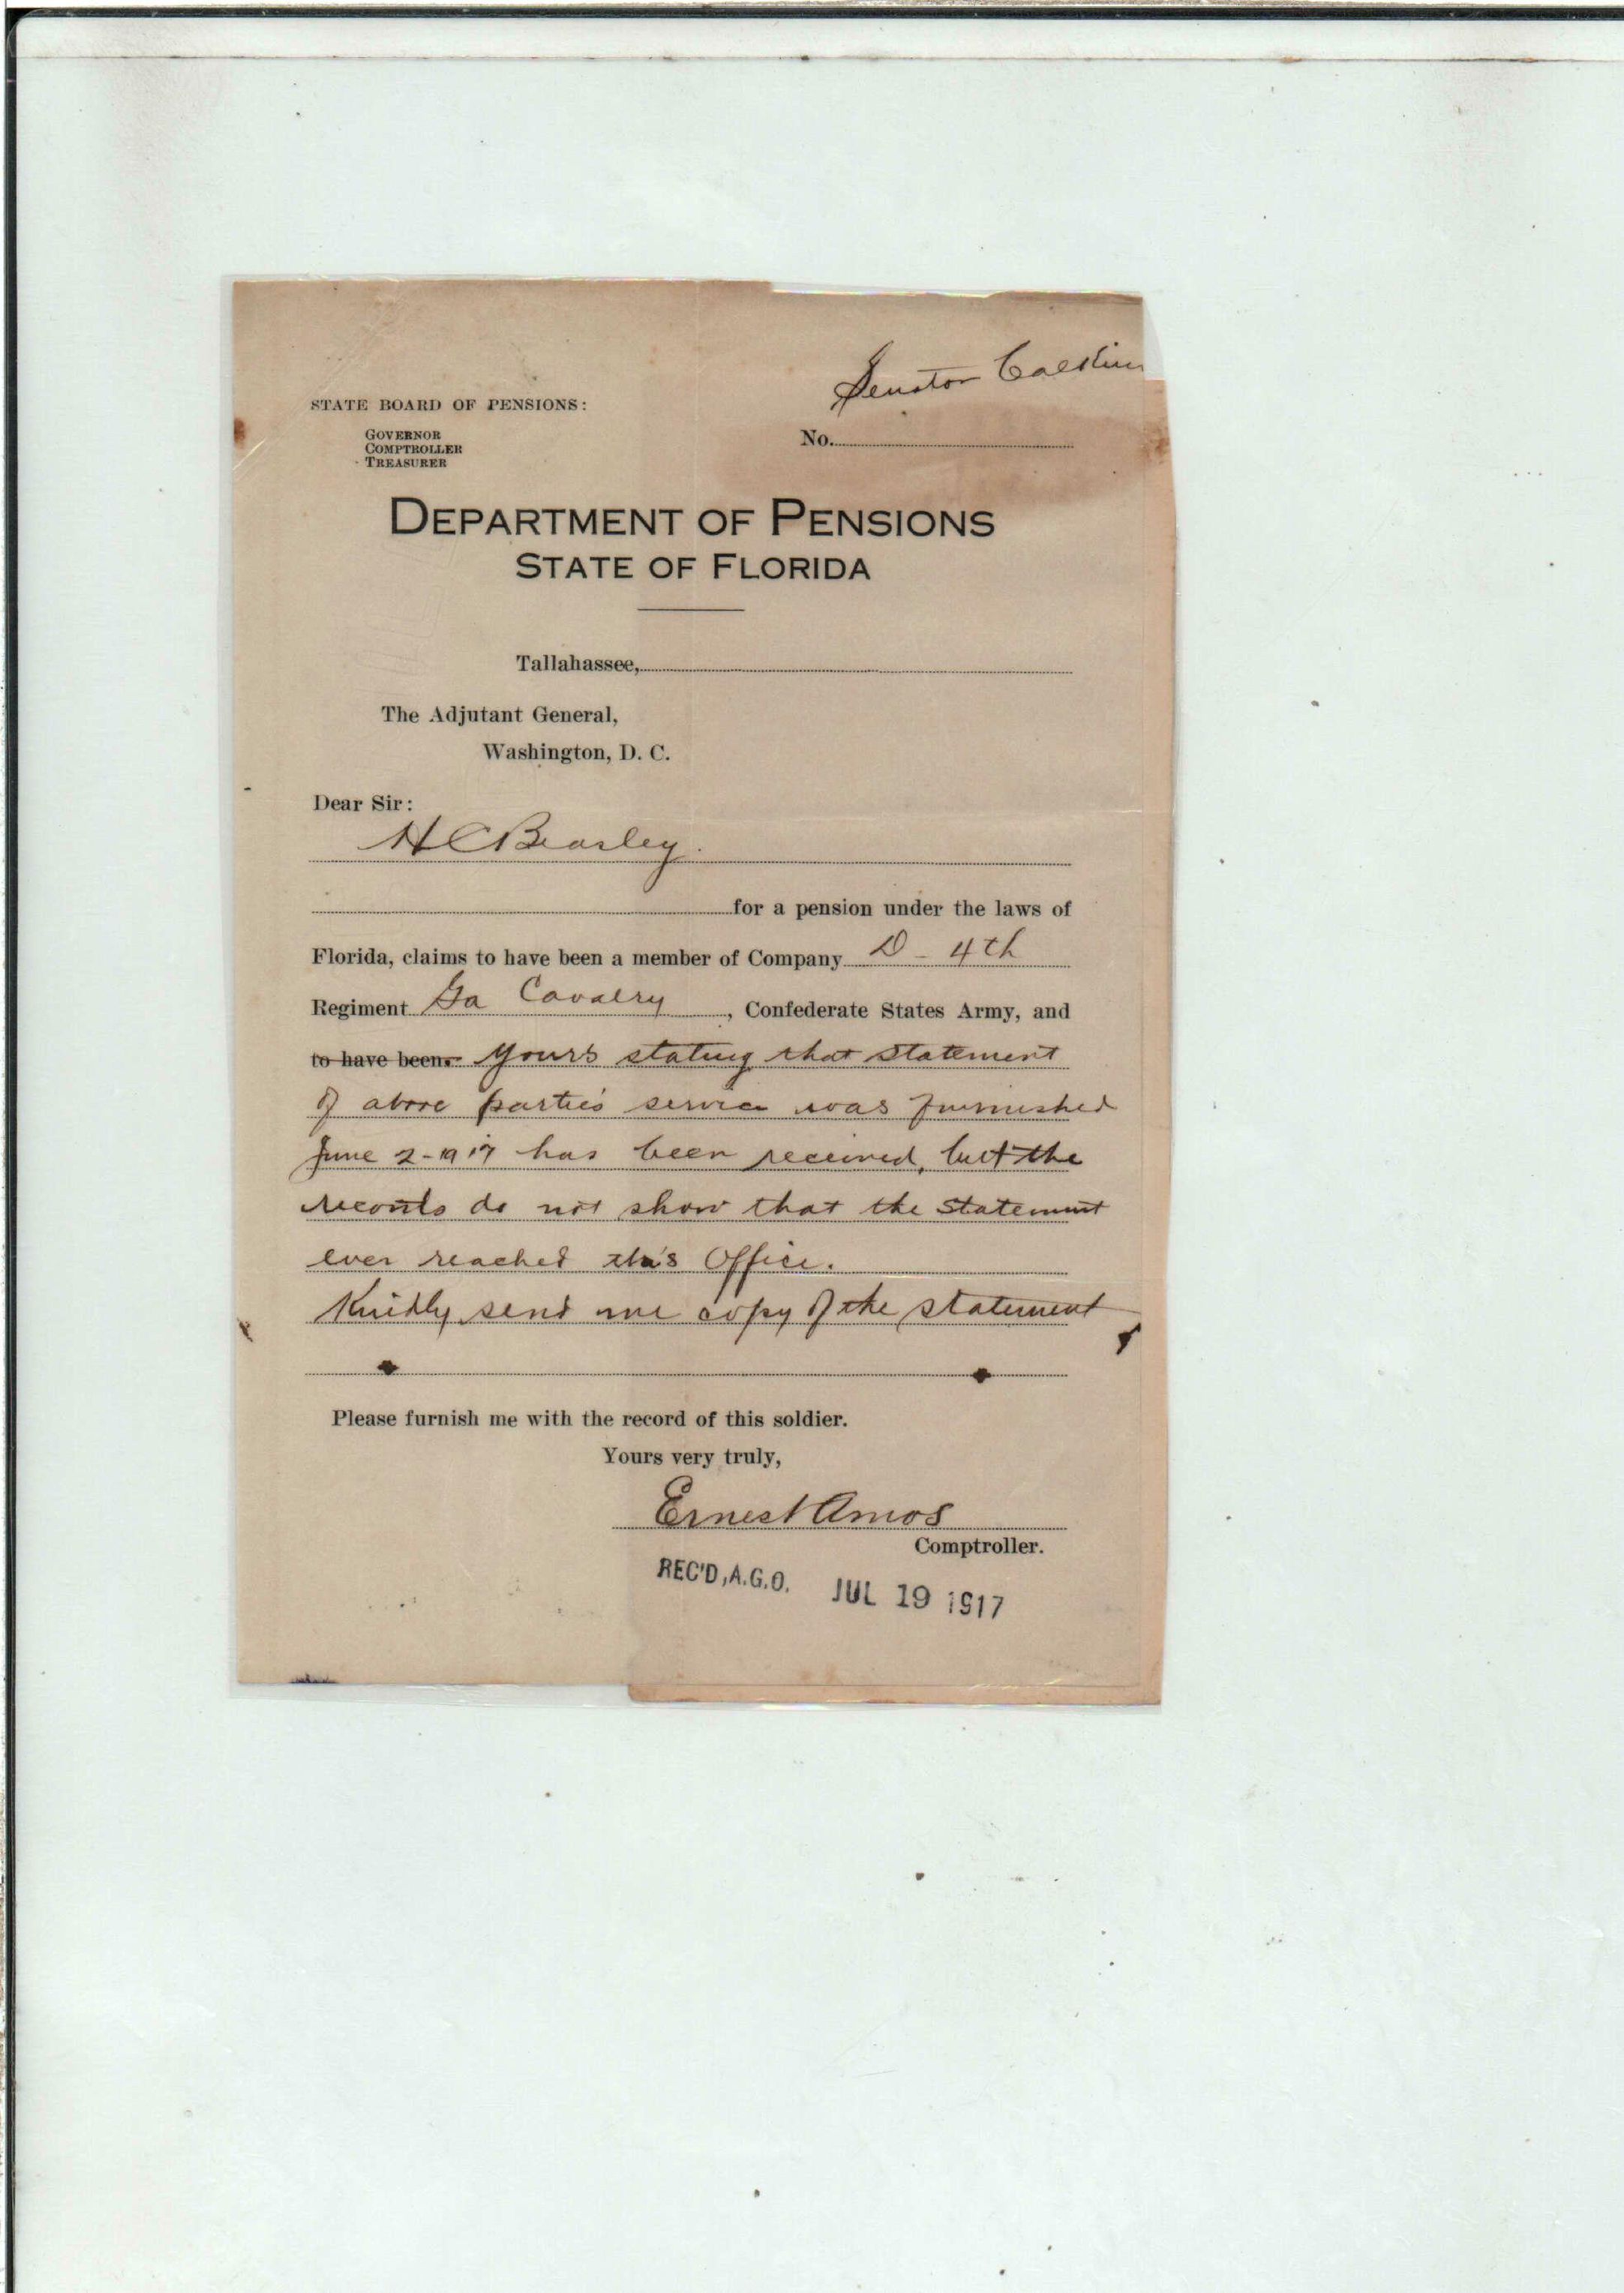 Senator
STATE BOARD OF PENSIONS:
GOVERNOR
COMPTROLLER
TREASURER
No.
DEPARTMENT OF PENSIONS
STATE OF FLORIDA
Tallahassee,
The Adjutant General,
Washington, D. C.
Dear Sir:
H C Beasley.
for a pension under the laws of
Florida, claims to have been a member of Company D - 4th
Regiment Ga Cavalry, Confederate States Army, and
to have been. Yours stating that statement
of above parties service was furnished
June 2-1917 has been received, but the
records do not show that the statement
ever reached this Office.
Kindly send me copy of the statement
Please furnish me with the record of this soldier.
Yours very truly,
Ernest Amos
Comptroller.
REC'D, A.G.O. JUL 19 1917